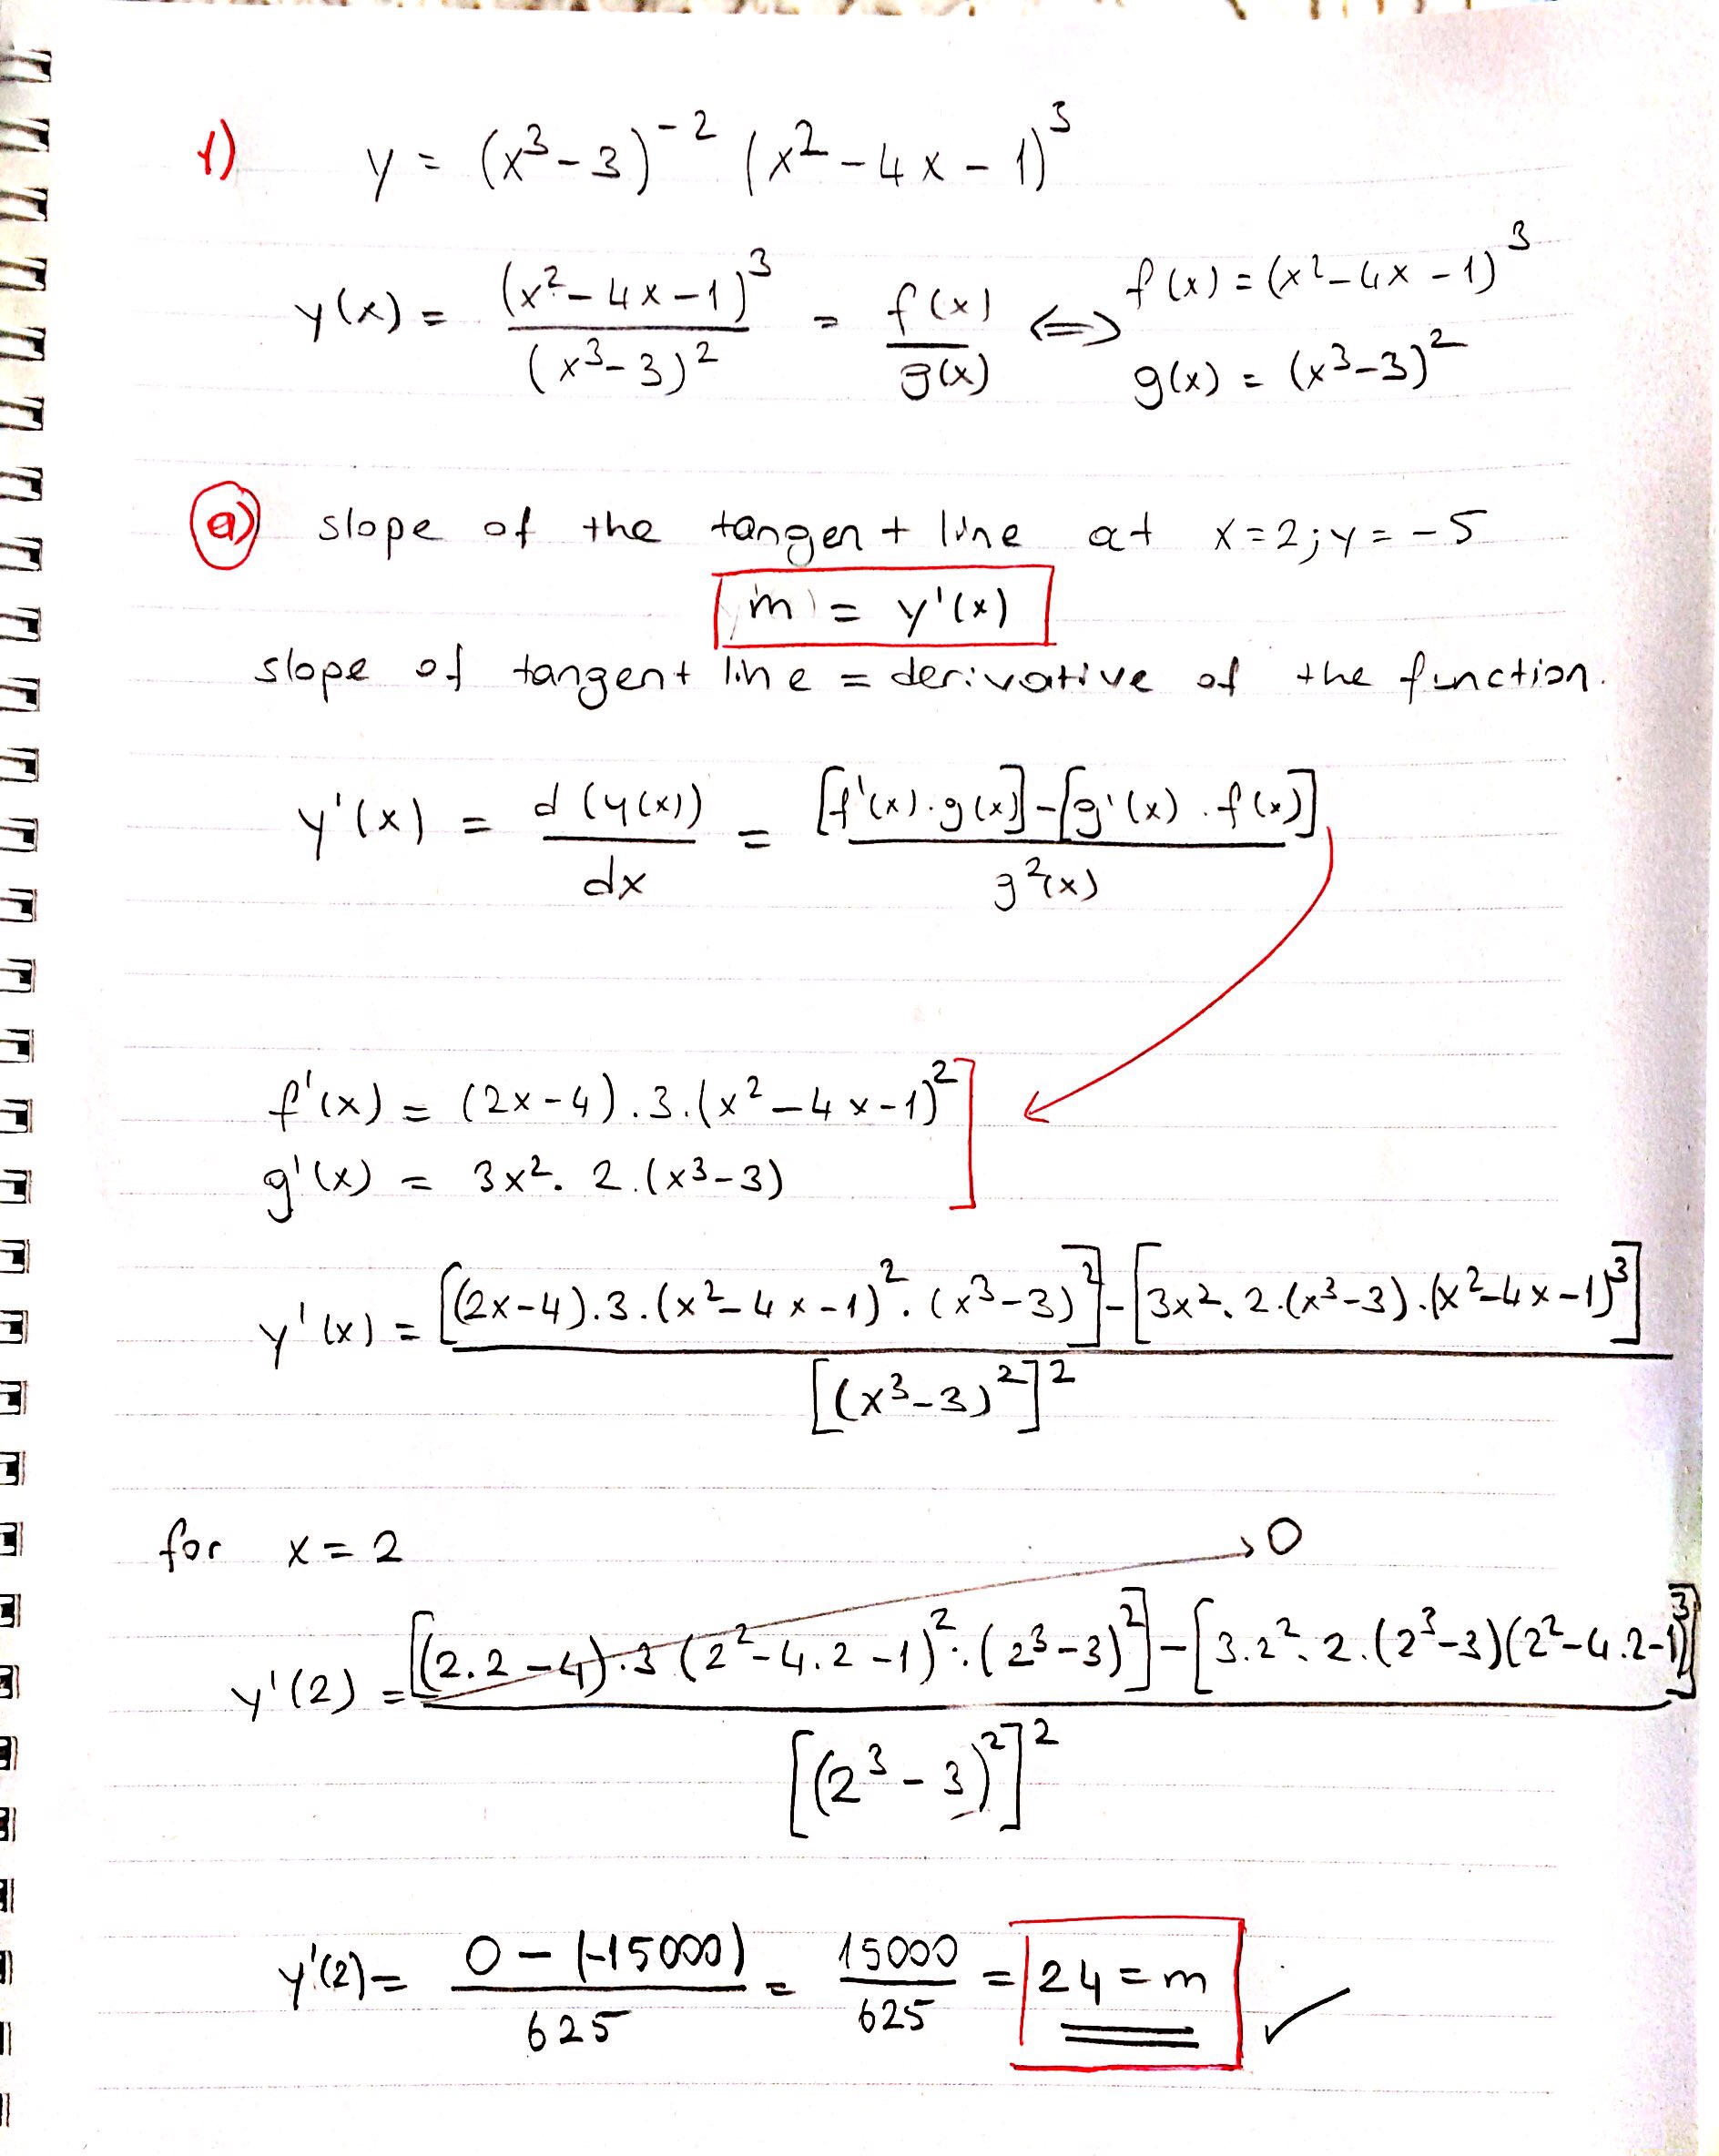 1) y = (x³-3)⁻² (x²-4x-1)³
y(x) = (x²-4x-1)³ / (x³-3)² = f(x) / g(x) ⟺ f(x) = (x²-4x-1)³
g(x) = (x³-3)²
a) slope of the tangent line at x=2; y=-5
m = y'(x)
slope of tangent line = derivative of the function.
y'(x) = d(y(x)) / dx = [f'(x).g(x)]-[g'(x).f(x)] / g²(x)
f'(x) = (2x-4).3.(x²-4x-1)²
g'(x) = 3x².2.(x³-3)
y'(x) = [(2x-4).3.(x²-4x-1)².(x³-3)²]-[3x².2.(x³-3).(x²-4x-1)³] / [(x³-3)²]²
for x=2 → 0
y'(2) = [(2.2-4).3(2²-4.2-1)².(2³-3)²]-[3.2².2.(2³-3)(2²-4.2-1)³] / [(2³-3)²]²
y'(2) = 0-(-15000) / 625 = 15000 / 625 = 24 = m ✓